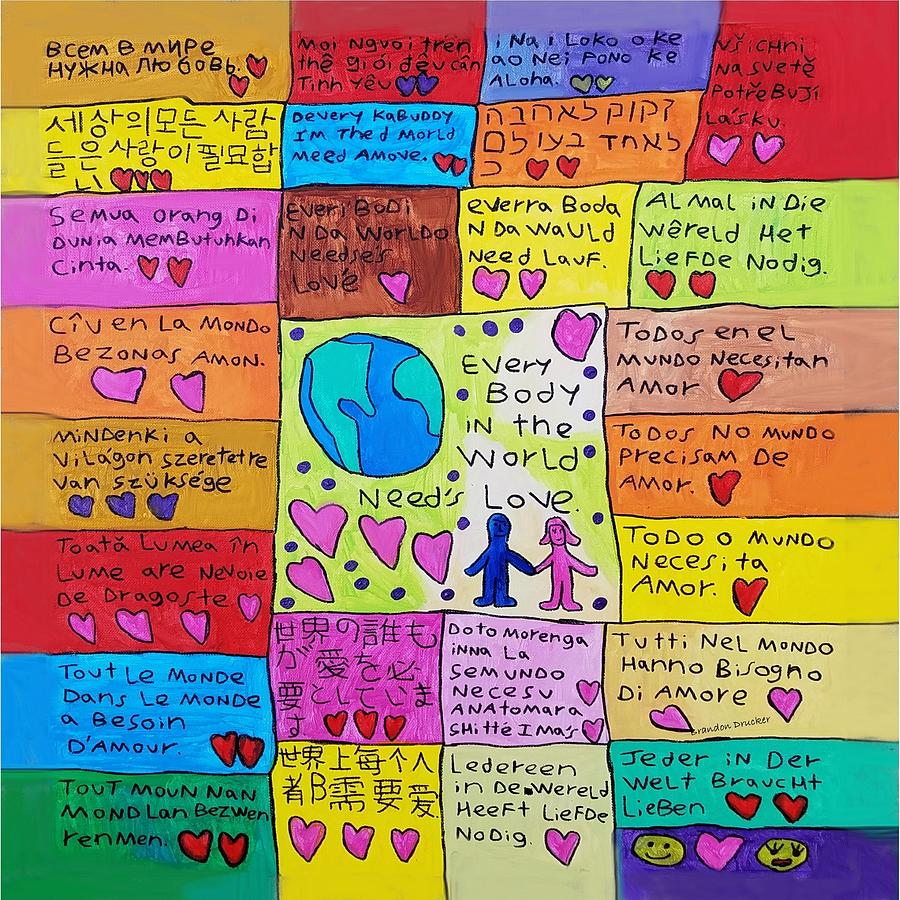 Всем в мире
нужна любовь.
Mọi người trên
thế giới đều cần
Tình yêu
i Na i Loko o ke
ao Nei Pono ke
ALoha.
VŠichni
Na Světě
PotřeBují
Lásku.
세상의 모든 사람
들은 사랑이 필요합
니
Devery KaBuDDy
I'm The d World
Meed Amove.
זקוק לאהבה
לאחד בעולם
כ
Semua orang Di
Dunia Membutuhkan
Cinta.
EVeri BoDi
N Da WorLDo
Needses
Love
eVerra BoDa
N Da WauLD
Need Lauf.
ALmal in Die
Wêreld Het
LiefDe Nodig.
Cîu en La Mondo
Bezonas Amon.
Every
Body
in the
World
Need's Love.
ToDos en el
Mundo Necesitan
Amor
ToDos No Mundo
Precisam De
Amor.
MinDenki a
Világon szeretetre
van szüksége
ToDo o Mundo
Necesita
Amor.
Toată Lumea în
Lume are Nevoie
De Dragoste
世界の誰も
が愛を必
要としていま
す
Doto Morenga
inna La
Sem undo
Necesu
Anatomara
Shitté Imas
Tutti Nel Mondo
Hanno Bisogno
Di Amore
Brandon Drucker
Tout Le Monde
Dans Le Monde
a Besoin
D'Amour.
世界上每个人
都需要爱
Ledereen
in De Wereld
Heeft LiefDe
NoDig.
Jeder in Der
Welt Braucht
LieBen
Tout Moun Nan
Mond Lan Bezwen
renmen.